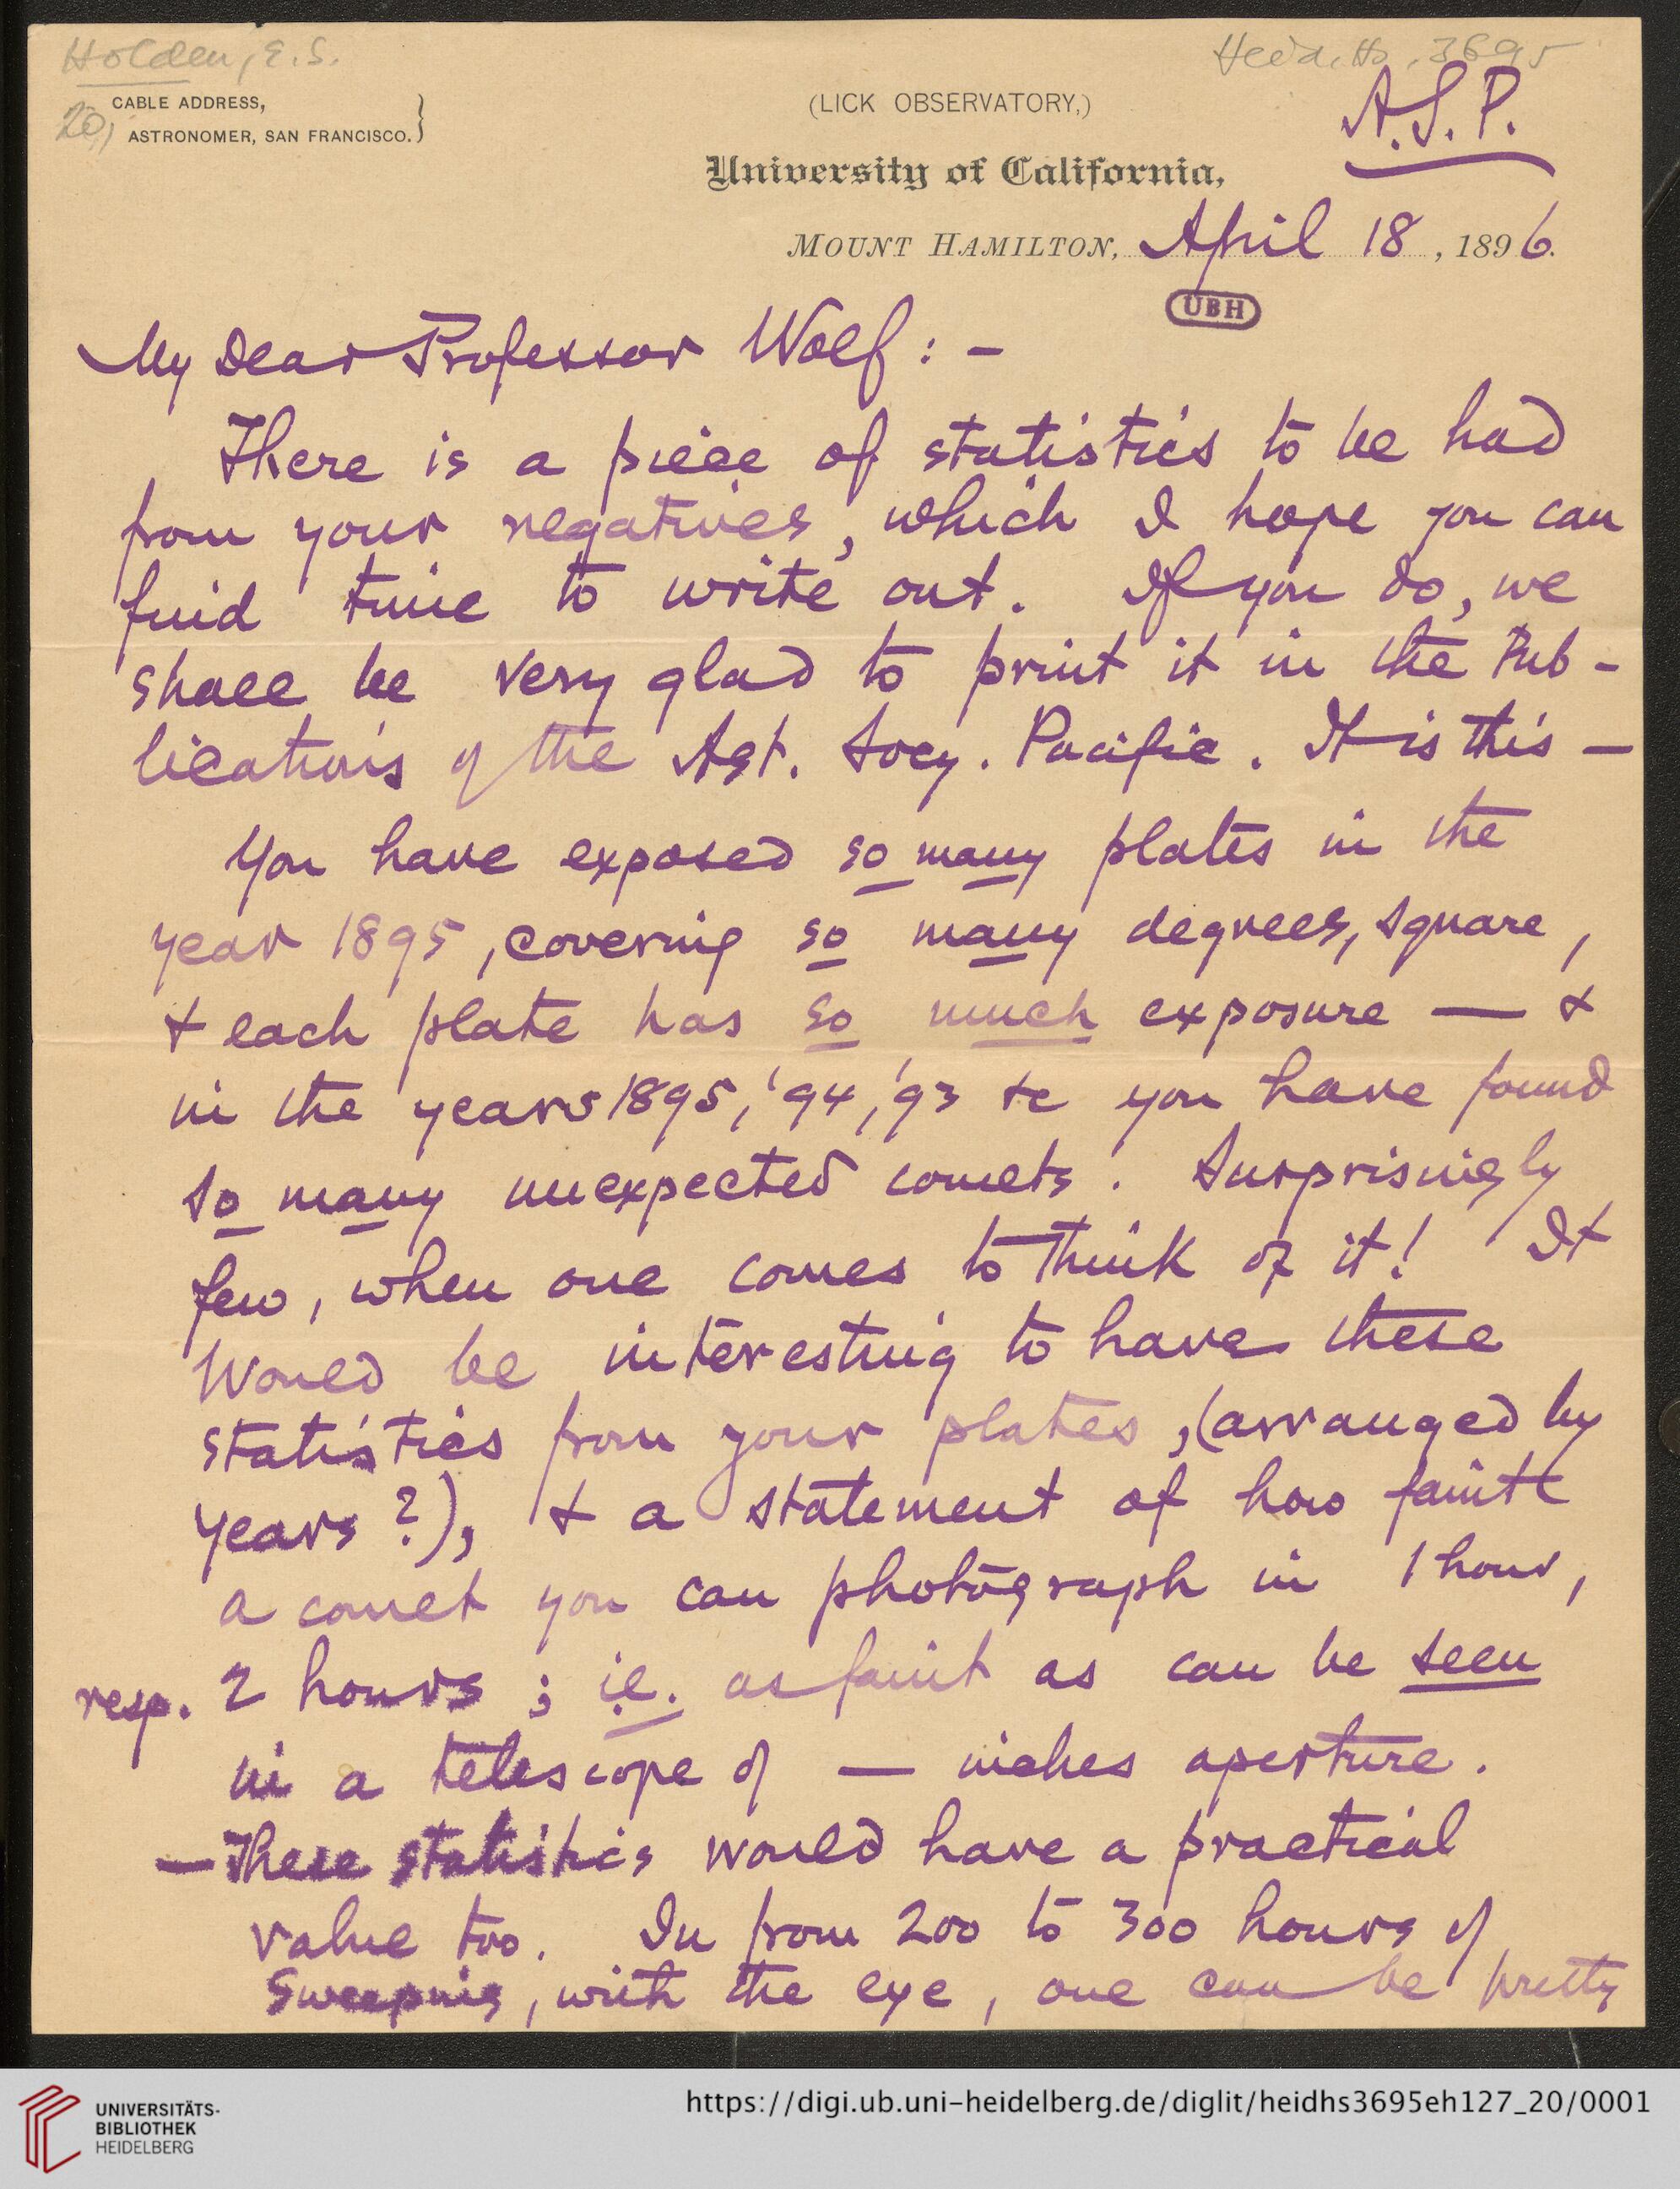 Holden, E.S.
Heid. Hs. 3695
20,
CABLE ADDRESS,
ASTRONOMER, SAN FRANCISCO.
(LICK OBSERVATORY,)
A.S.P.
University of California,
MOUNT HAMILTON, April 18, 1896.
UBH
My Dear Professor Wolf: -
There is a piece of statistics to be had
from your negatives, which I hope you can
find time to write out. If you do, we
shall be very glad to print it in the Pub-
lications of the Ast. Socy. Pacific. It is this —
You have exposed so many plates in the
year 1895, covering so many degrees, square,
& each plate has so much exposure — &
in the years 1895, '94, '93 &c you have found
so many unexpected comets. Surprisingly
few, when one comes to think of it! It
would be interesting to have these
statistics from your plates, (arranged by
years?), & a statement of how faint
a comet you can photograph in 1 hour,
resp. 2 hours; i.e. as faint as can be seen
in a telescope of — inches aperture.
— These statistics would have a practical
value too. In from 200 to 300 hours of
sweeping, with the eye, one can be pretty
UNIVERSITÄTS-
BIBLIOTHEK
HEIDELBERG
https://digi.ub.uni-heidelberg.de/diglit/heidhs3695eh127_20/0001